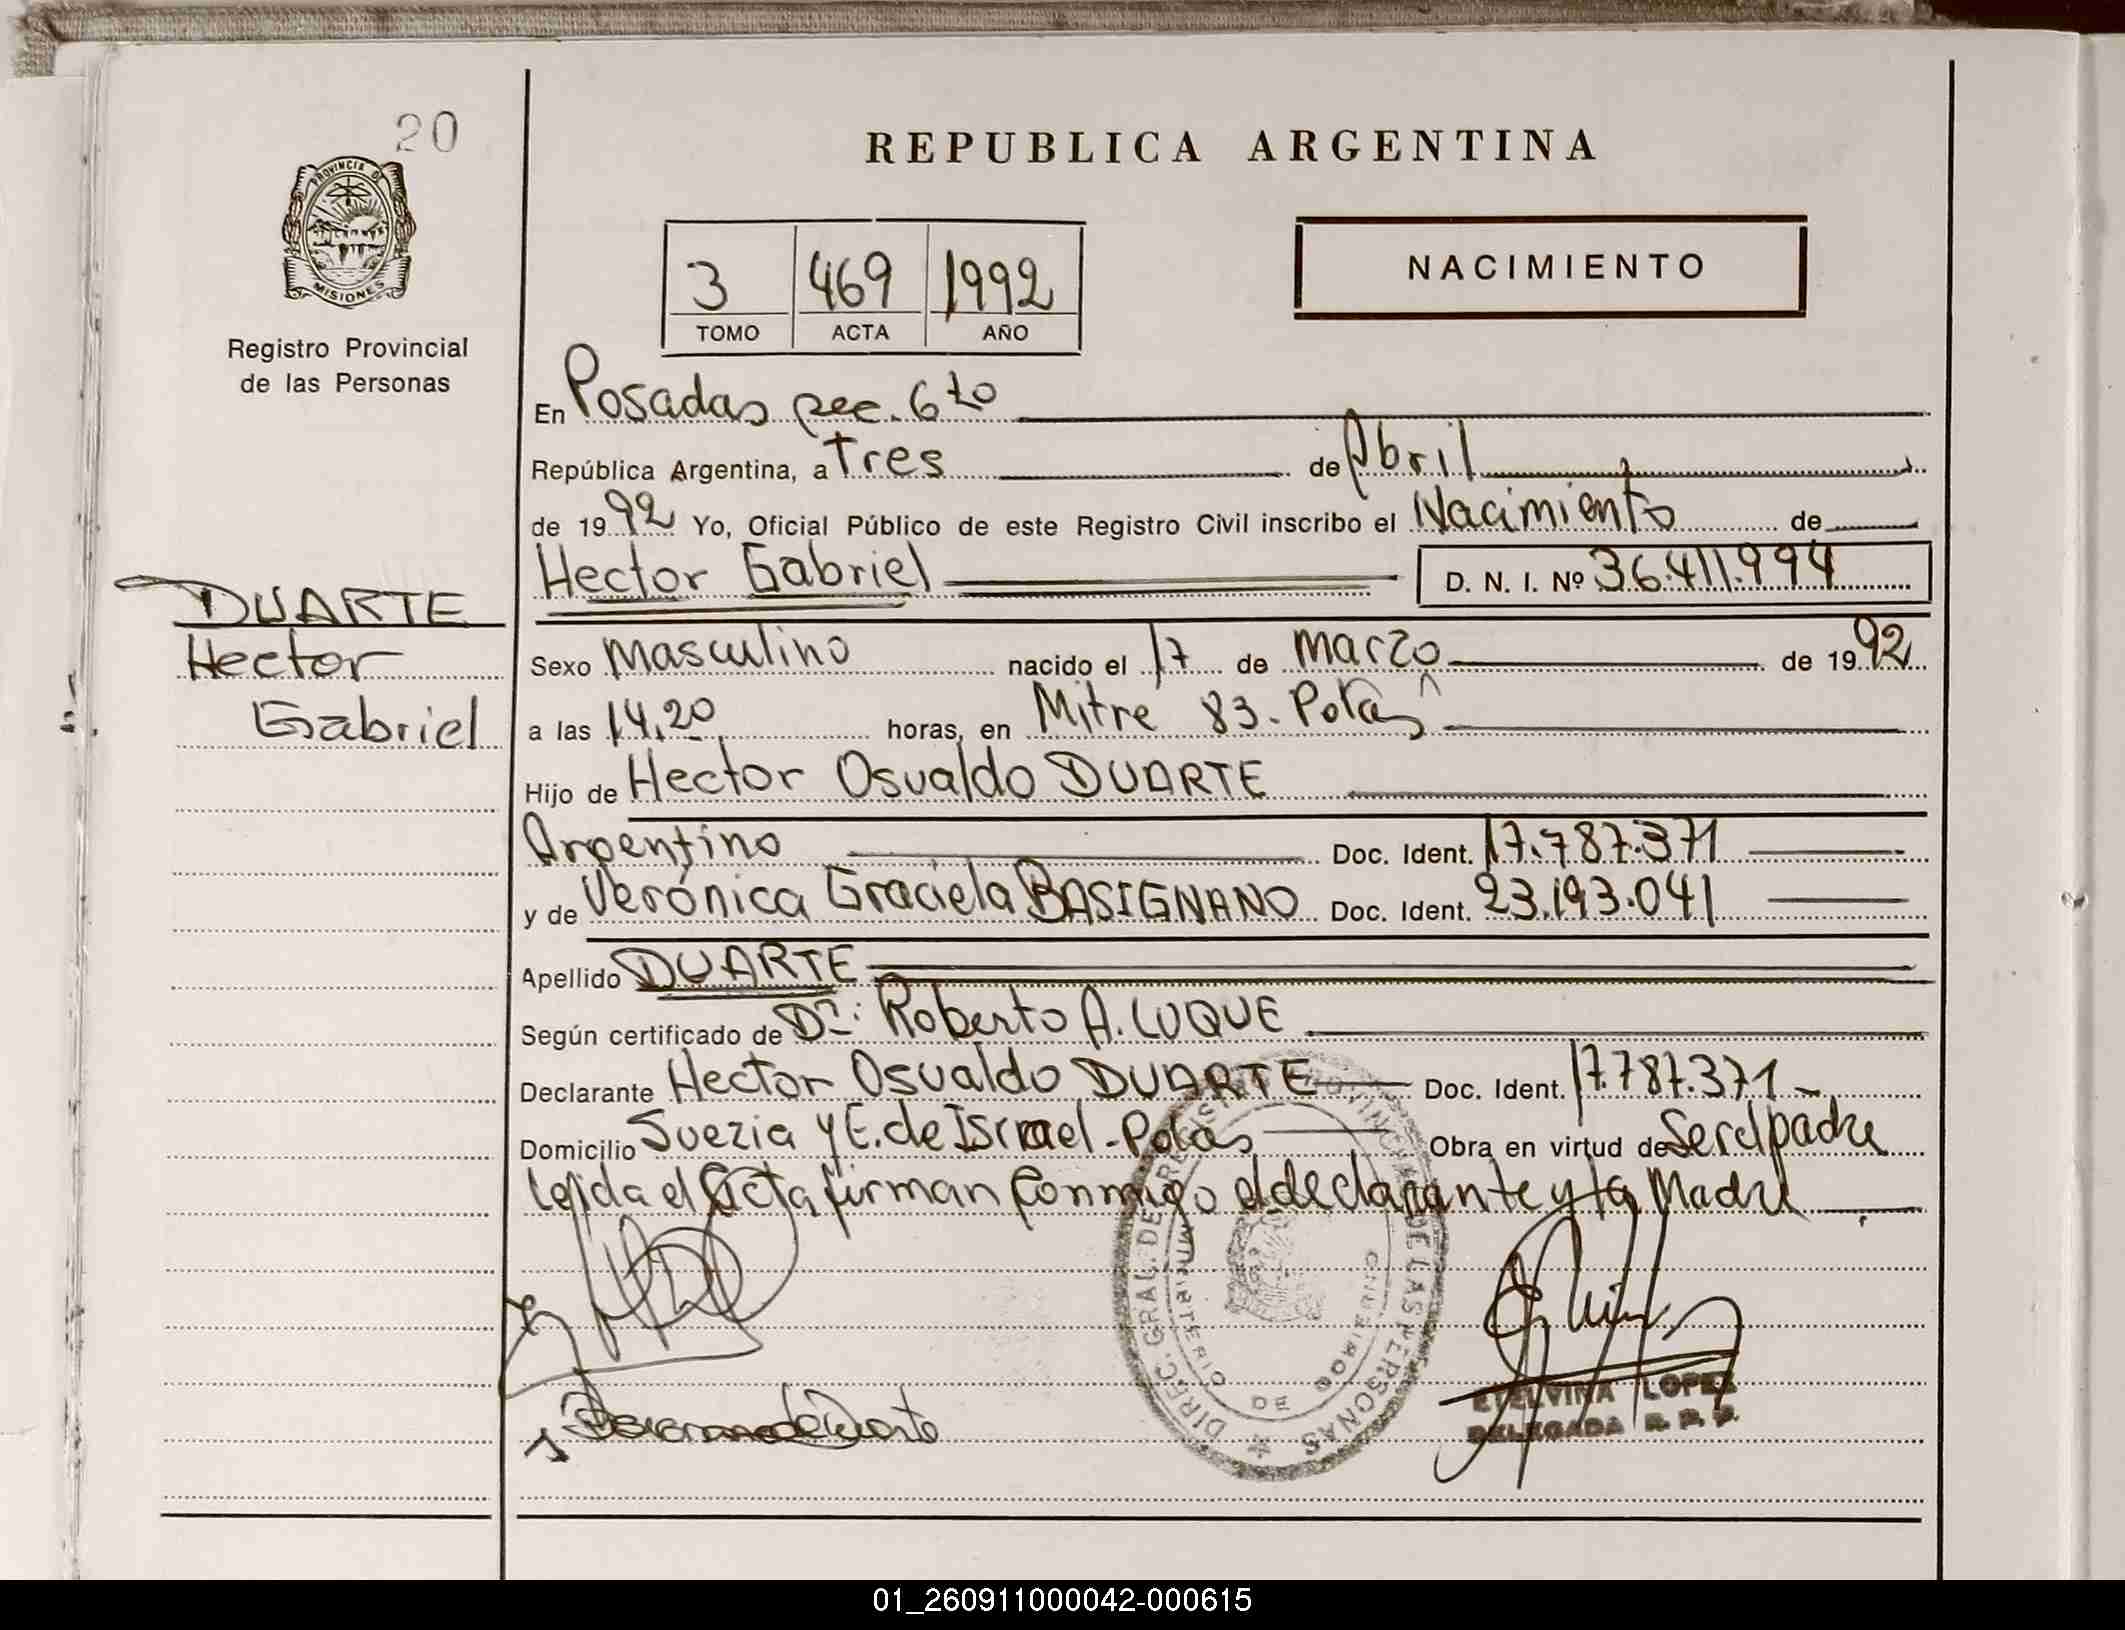 20
PROVINCIA DE
MISIONES
Registro Provincial
de las Personas
REPUBLICA ARGENTINA
3 469 1992
TOMO ACTA AÑO
NACIMIENTO
En Posadas secc. 6to
República Argentina, a Tres de Abril
de 1992 Yo, Oficial Público de este Registro Civil inscribo el Nacimiento de
Hector Gabriel D. N. I. Nº 36.411.994
DUARTE
Hector
Gabriel
Sexo Masculino nacido el 17 de Marzo de 1992
a las 14,20 horas, en Mitre 83 - Pdas
Hijo de Hector Osvaldo DUARTE
Argentino Doc. Ident. 17.787.371
y de Verónica Graciela BASIGNANO Doc. Ident. 23.193.041
Apellido DUARTE
Según certificado de Dr: Roberto A. LUQUE
Declarante Hector Osvaldo DUARTE Doc. Ident. 17.787.371
Domicilio Suezia y E. de Israel - Pdas Obra en virtud de Ser el padre
Leida el Acta firman Conmigo el declarante y la Madre
DIREC. GRAL. DEL REGISTRO PROVINCIAL DE LAS PERSONAS
MINISTERIO DE GOBIERNO
ETELVINA LOPEZ
DELEGADA R. P. P.
01_260911000042-000615